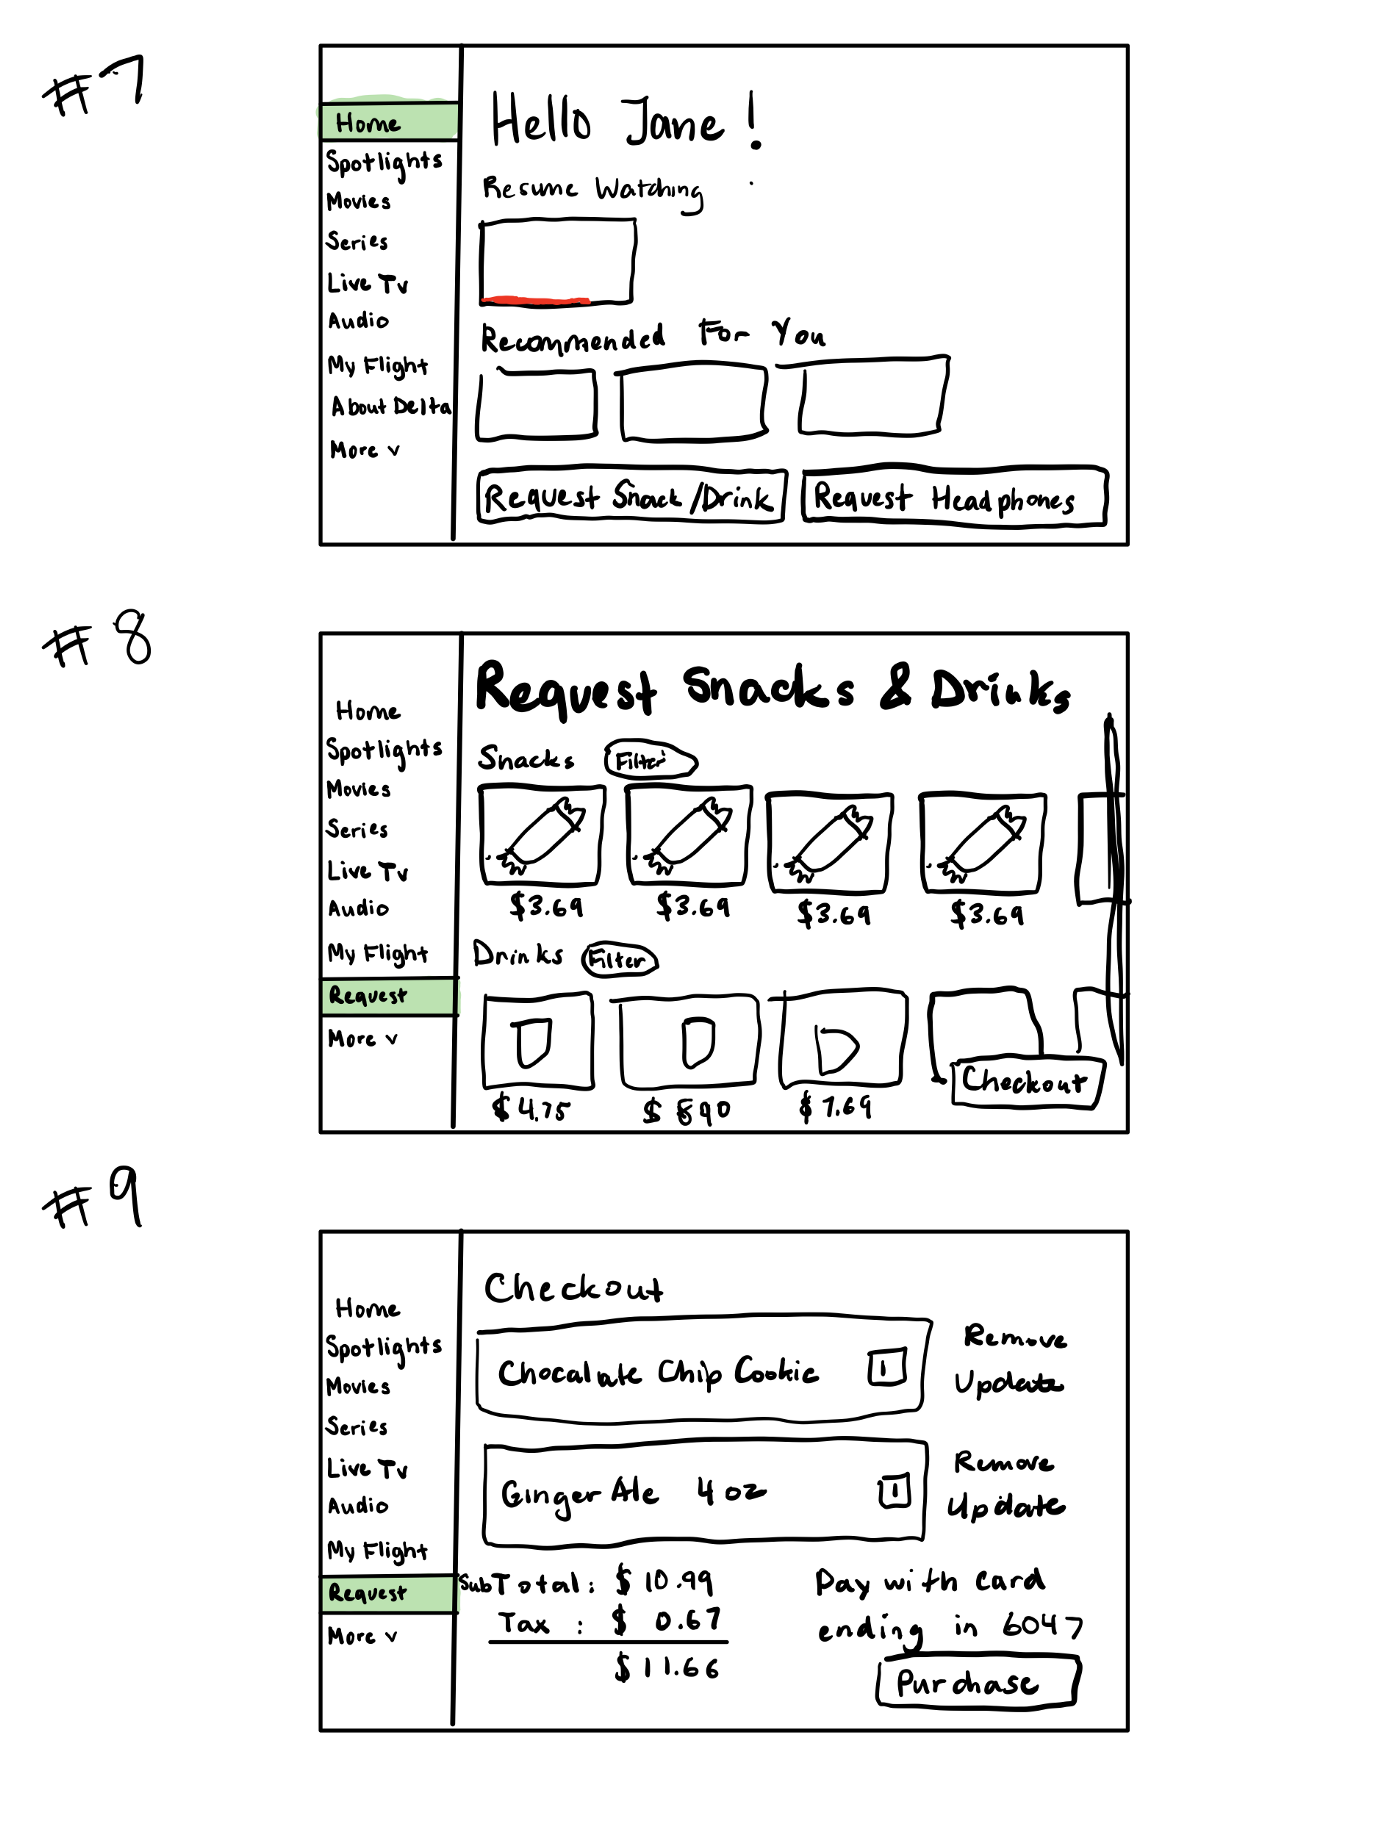 #7
Home
Spotlights
Movies
Series
Live Tv
Audio
My Flight
About Delta
More v
Hello Jane!
Resume Watching
Recommended For You
Request Snack/Drink
Request Headphones
#8
Home
Spotlights
Movies
Series
Live Tv
Audio
My Flight
Request
More v
Request Snacks & Drinks
Snacks Filter
$3.69 $3.69 $3.69 $3.69
Drinks Filter
$4.75 $890 $7.69
Checkout
#9
Home
Spotlights
Movies
Series
Live Tv
Audio
My Flight
Request
More v
Checkout
Chocalate Chip Cookie 1
Remove
Update
Ginger Ale 4 oz 1
Remove
Update
SubTotal: $10.99
Tax : $ 0.67
$11.66
Pay with card
ending in 6047
Purchase